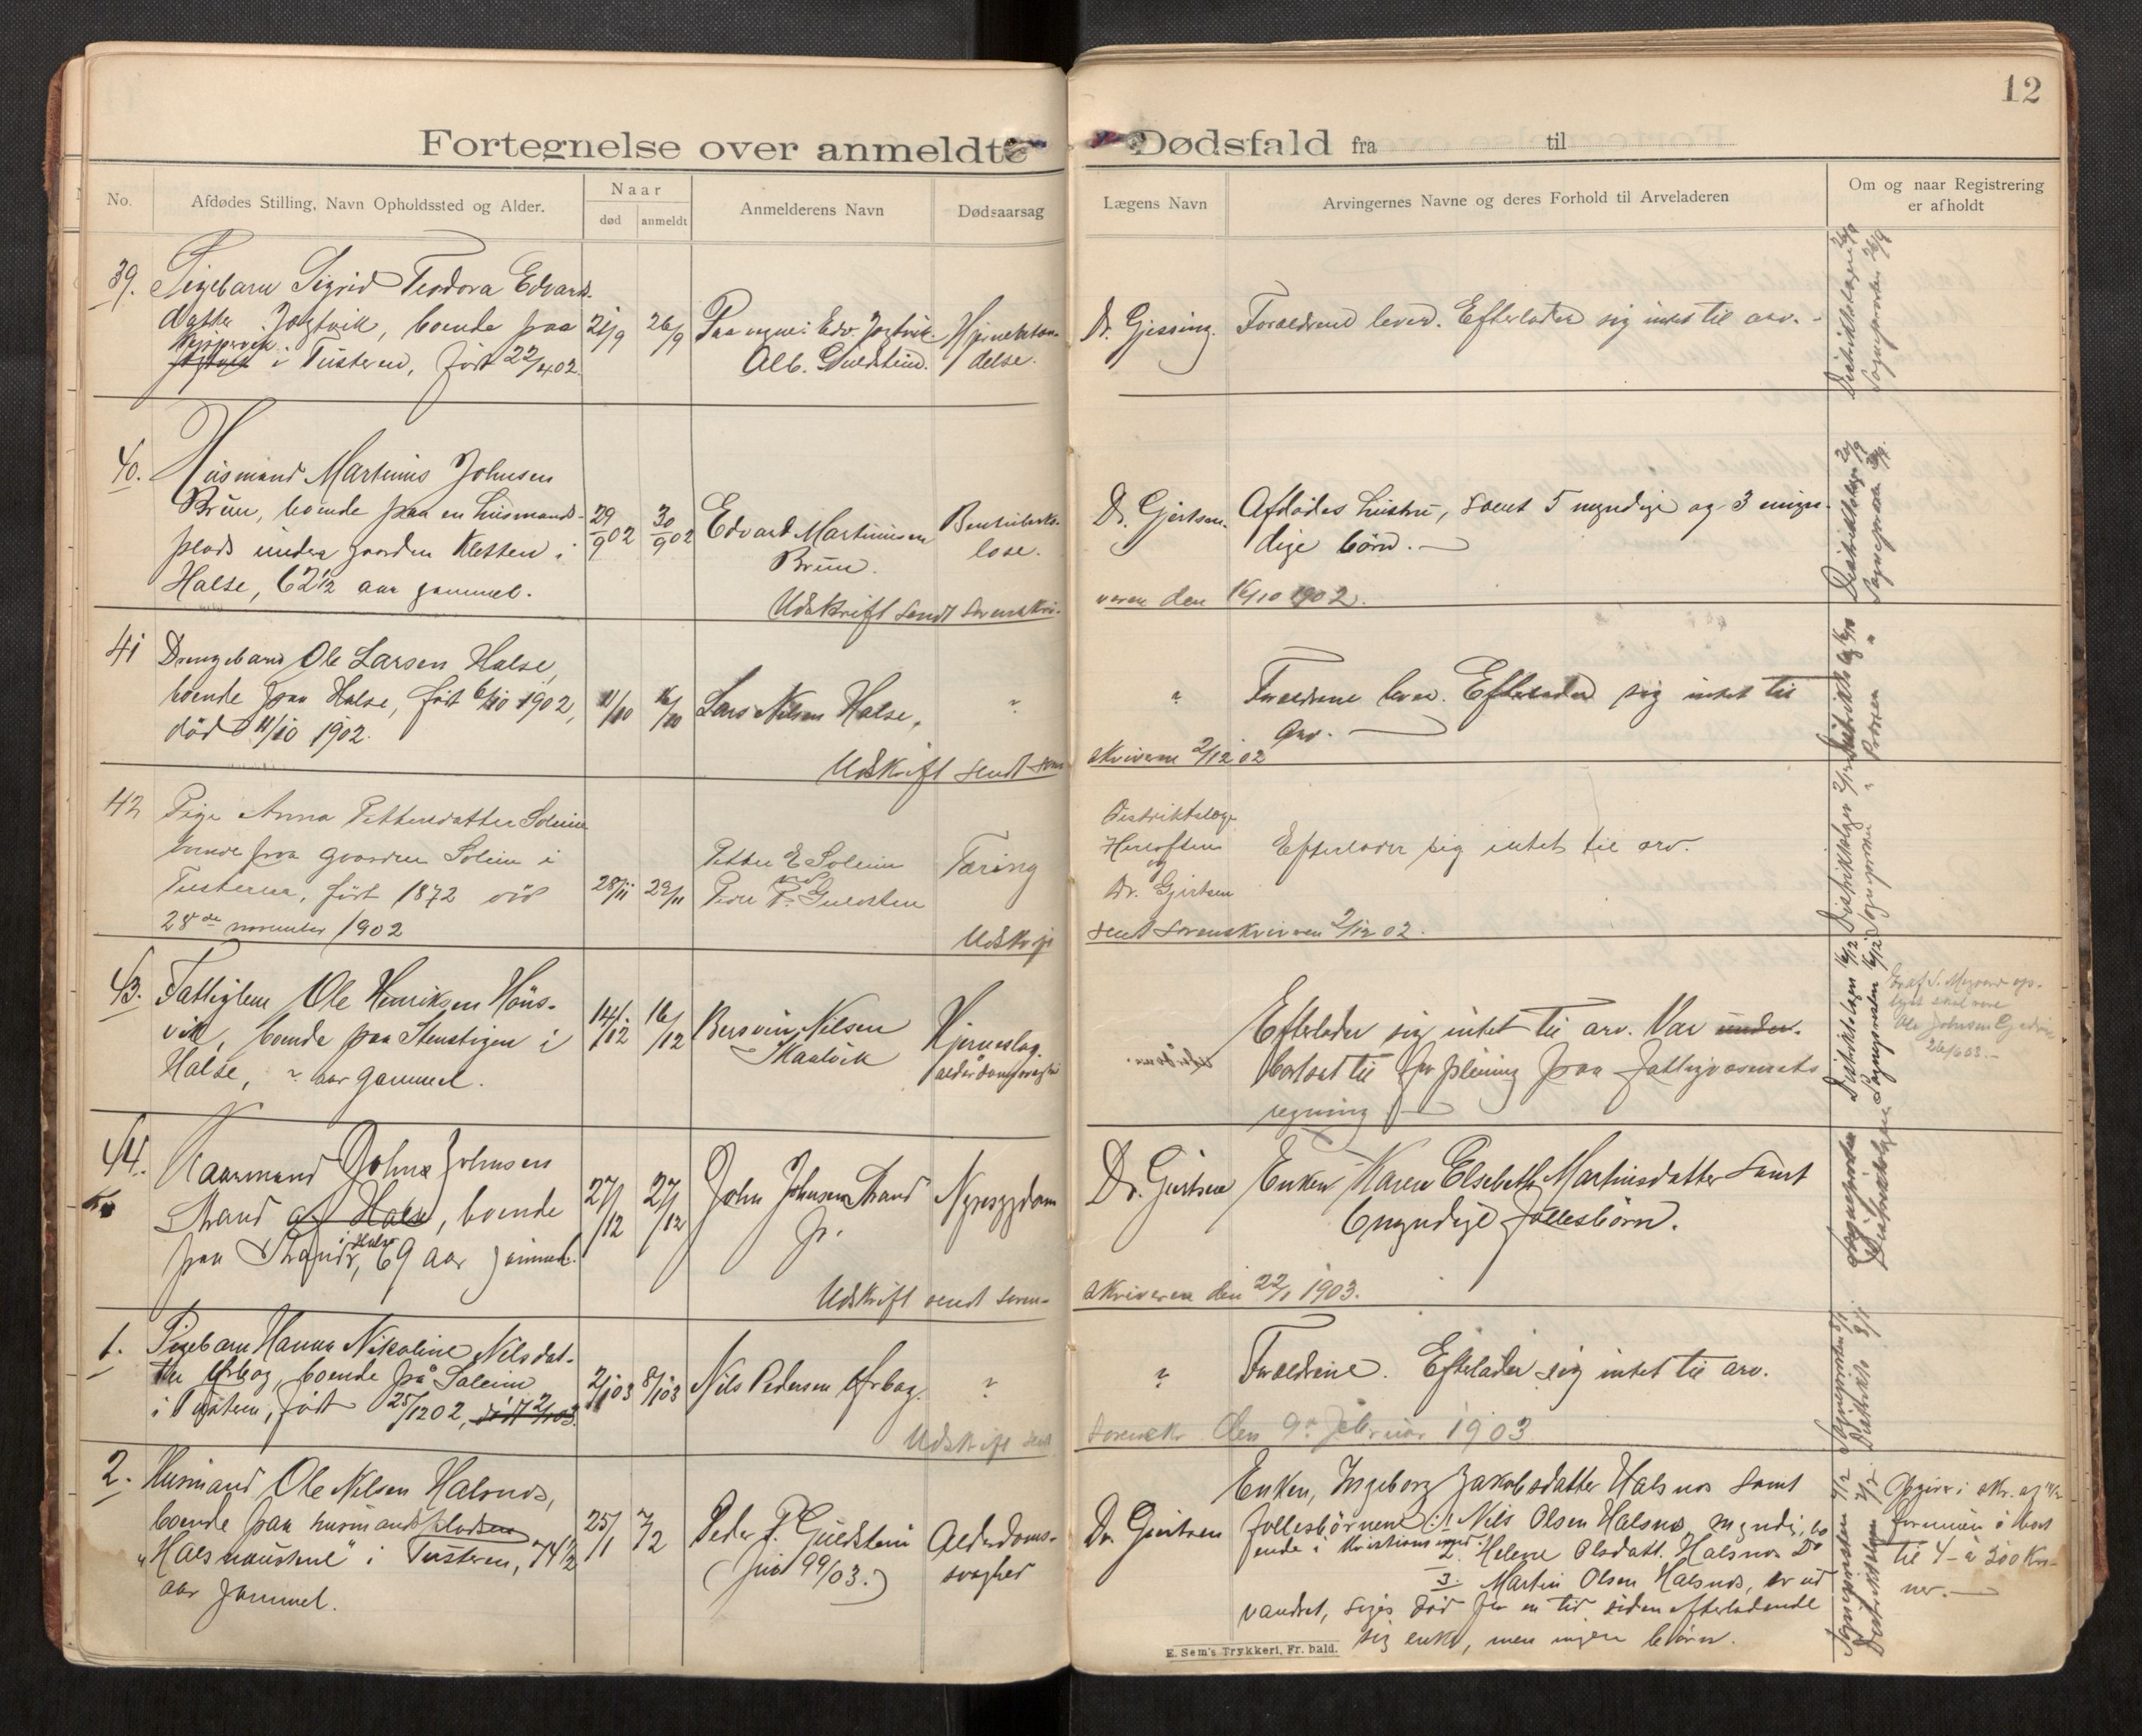 12
Fortegnelse over anmeldte Dødsfald fra til
No.
Afdødes Stilling, Navn Opholdssted og Alder.
Naar
død anmeldt
Anmelderens Navn
Dødsaarsag
Lægens Navn
Arvingernes Navne og deres Forhold til Arveladeren
Om og naar Registrering
er afholdt
39. Pigebarn Sigrid Teodora Edvards-
datter Jøgtvik, boende paa
i Tusteren, født 22/4 02.
21/9 26/9
Paa vegne: Edv. Jøgtvik
Alb. Guldstein.
Hjernebetæn-
delse.
Dr. Gjessing.
Forældrene lever. Efterlader sig intet til arv. -
Distriktslægen 26/9
Sognepresten 26/9
40. Husmand Martinus Johnsen
Brun, boende paa en husmands-
plads under gaarden Kletten i
Halse, 62 1/2 aar gammel.
29/9 02 30/9 02
Edvard Martinusen
Brun.
Dr. Gjertsen.
Afdødes hustru, samt 5 myndige og 3 umyn-
dige børn. —
Distriktslægen
Sognepresten
Udskrift sendt sorenskri-
veren den 16/10 1902.
41 Drengebarn Ole Larsen Halse,
boende paa Halse, født 6/10 1902,
død 11/10 1902.
11/10 16/10
Lars Nilsen Halse.
"
"
Forældrene lever. Efterlader sig intet til
Arv. —
Udskrift sendt soren
skriveren 2/12 02
42 Pige Anna Pettersdatter Soleim
boende paa gaarden Soleim i
Tusteren, født 1872 død
28de november 1902
28/11 29/11
Petter E Soleim
ved
Peder P. Guldsten
Tæring
Distriktslæge
og
Dr. Gjertsen
Efterlader sig intet til arv.
Distriktslægen 2/12
Sognepresten "
Udskrift
sendt Sorenskriveren 2/12 02.
43. Fattiglem Ole Henriksen Høns-
vik, boende paa Stenstigen i
Halse, ? aar gammel.
14/12 16/12
Bersvein Nilsen
Skaalvik
Hjerneslag.
alderdomssvaghed
Efterlader sig intet til arv. Var under-
bortsat til forpleining paa fattigvæsenets
regning —
Distriktslægen 16/12
Sognepresten 16/12
26/6 03. -
44. Kaarmand John Johnsen
Strand af Halse, boende
i Halse
paa Strand, 69 aar gammel.
27/12 27/12
John Johnsen Strand
jr.
Nyresygdom
Dr. Gjertsen
Enken Karen Elsebeth Martinsdatter samt
6 myndige fællesbørn.
Sognepresten
Distriktslægen
Udskrift sendt soren-
skriveren den 22/1 1903.
1. Pigebarn Hanna Nikoline Nilsdat-
ter Ørbog, boende på Soleim
i Tusteren, født 25/12 02, død 2/1 03.
2/1 03 8/1 03
Nils Pedersen Ørbog.
"
"
Forældrene. Efterlader sig intet til arv.
Sognepresten
Distrikts
Udskrift sendt
sorenskr. den 9. februar 1903
2. Husmand Ole Nilsen Halsnæs,
boende paa husmandspladsen
"Halsnaustene" i Tusteren, 74 1/2
aar gammel.
25/1 7/2
Peder P. Guldstein
( 99/03.)
Alderdoms-
svaghed
Dr. Gjertsen
Enken, Ingeborg Jakobsdatter Halsnæs samt
fællesbørnene: 1. Nils Olsen Halsnæs, myndig, bo
ende i Kristiansund.
2. Helene Olsdatt. Halsnæs Do
3. Martin Olsen Halsnæs, er ud
vandret, siges død for en tid siden efterladende
sig enke, men ingen børn.
Sognepresten 7/2
Distriktslægen 7/2
til 4 à 500 Kro-
ner. —
E. Sem's Trykkeri, Fr.hald.